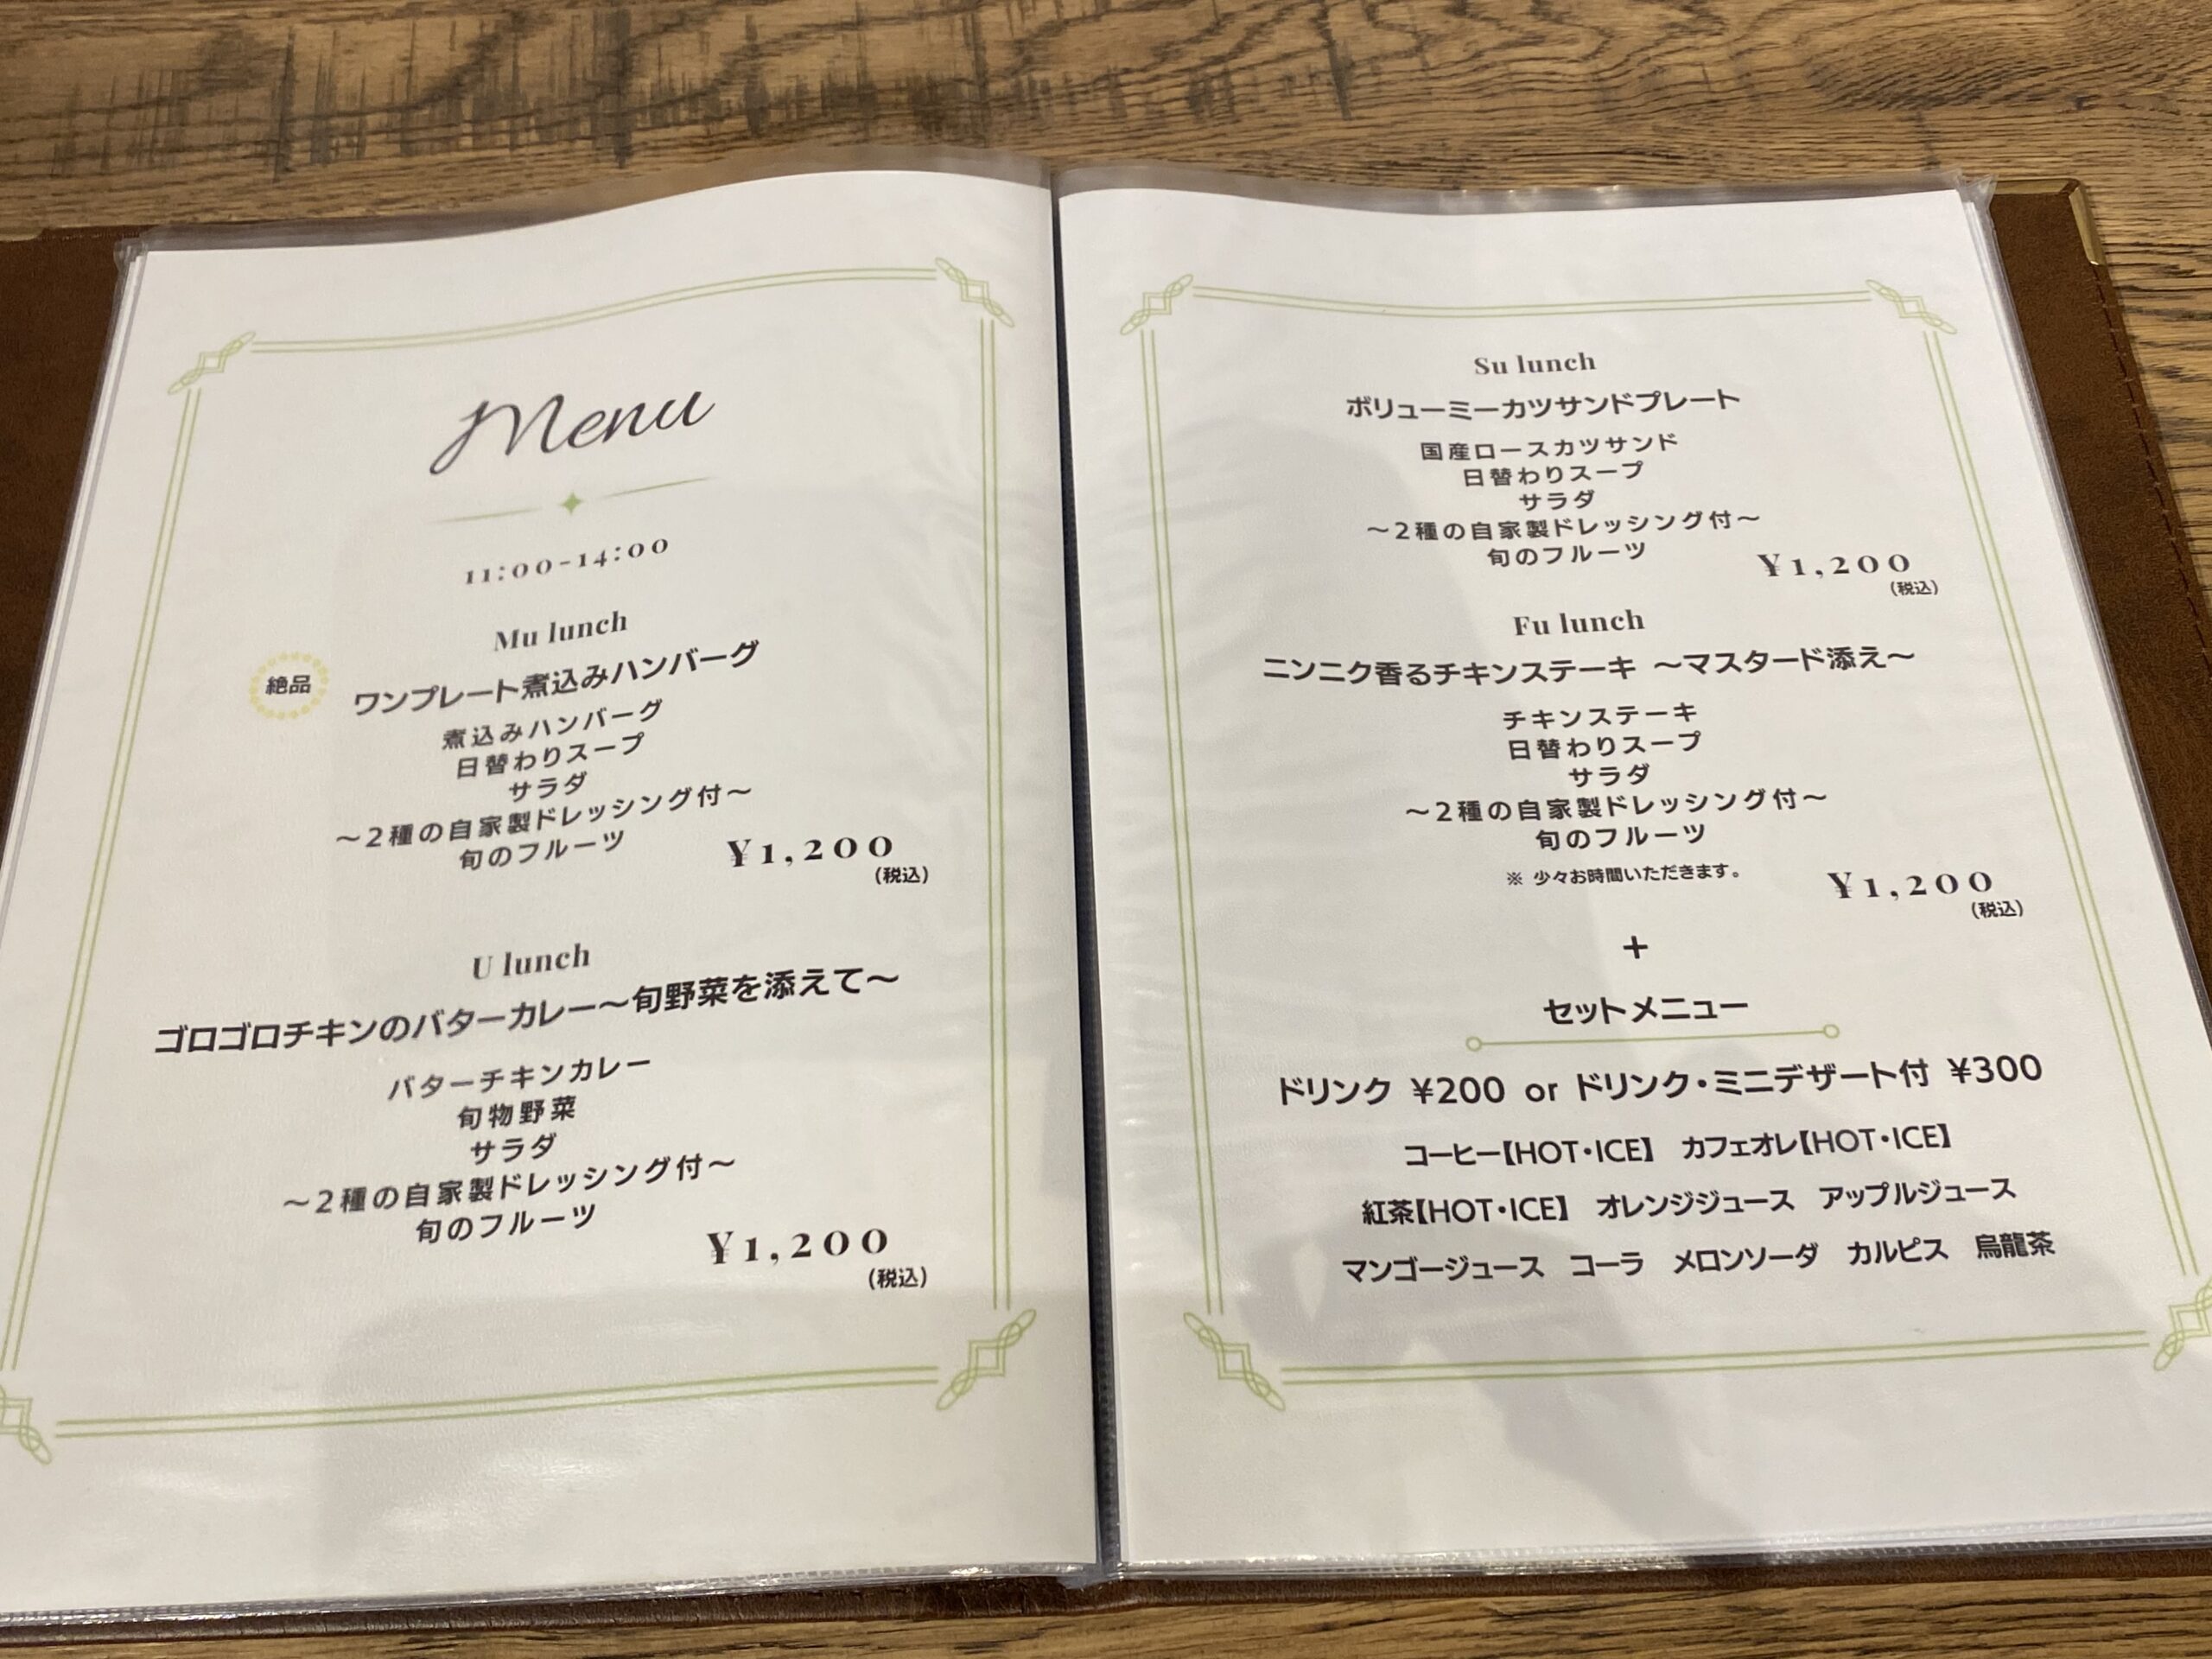 Menu
11:00-14:00
Mu lunch
絶品
ワンプレート煮込みハンバーグ
煮込みハンバーグ
日替わりスープ
サラダ
～2種の自家製ドレッシング付～
旬のフルーツ
¥1,200
(税込)
U lunch
ゴロゴロチキンのバターカレー～旬野菜を添えて～
バターチキンカレー
旬物野菜
サラダ
～2種の自家製ドレッシング付～
旬のフルーツ
¥1,200
(税込)
Su lunch
ボリューミーカツサンドプレート
国産ロースカツサンド
日替わりスープ
サラダ
～2種の自家製ドレッシング付～
旬のフルーツ
¥1,200
(税込)
Fu lunch
ニンニク香るチキンステーキ ～マスタード添え～
チキンステーキ
日替わりスープ
サラダ
～2種の自家製ドレッシング付～
旬のフルーツ
※ 少々お時間いただきます。
¥1,200
(税込)
+
セットメニュー
ドリンク ¥200 or ドリンク・ミニデザート付 ¥300
コーヒー【HOT・ICE】 カフェオレ【HOT・ICE】
紅茶【HOT・ICE】 オレンジジュース アップルジュース
マンゴージュース コーラ メロンソーダ カルピス 烏龍茶